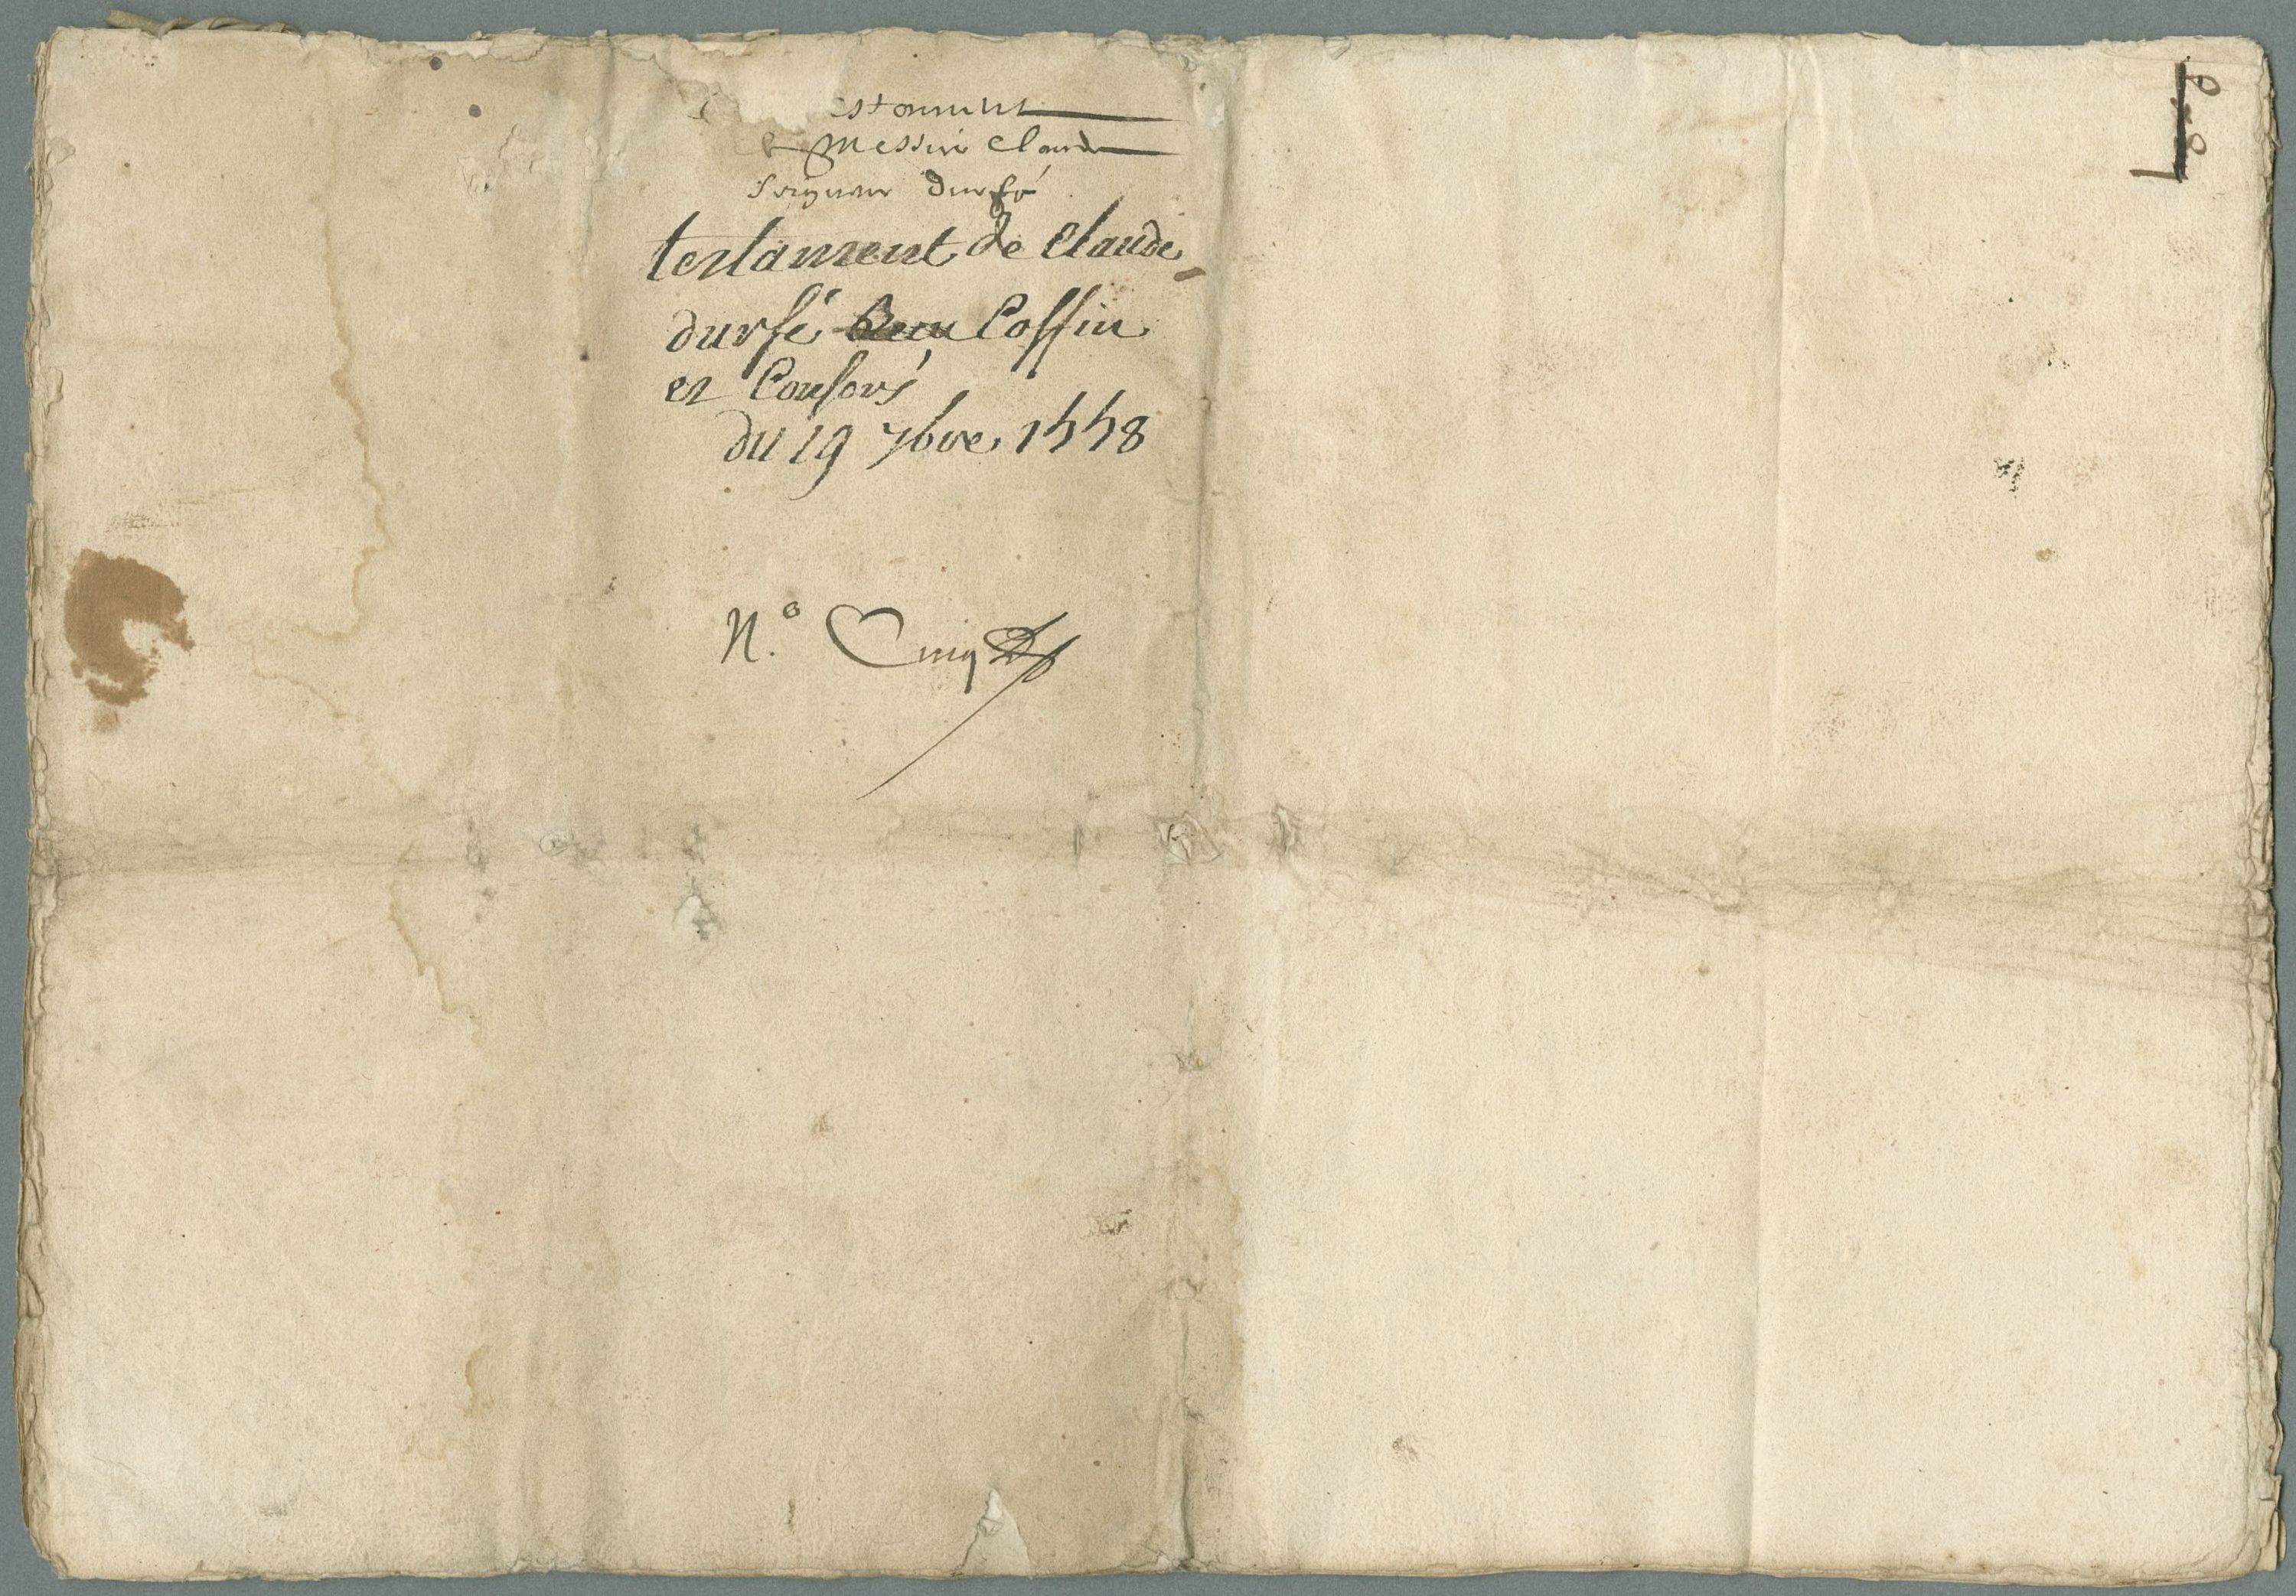 estament
de Messire Claude
Seigneur durfé
testament de Claude
durfé Coffin
et Consors
du 19 7bre 1558
N.º Cinq